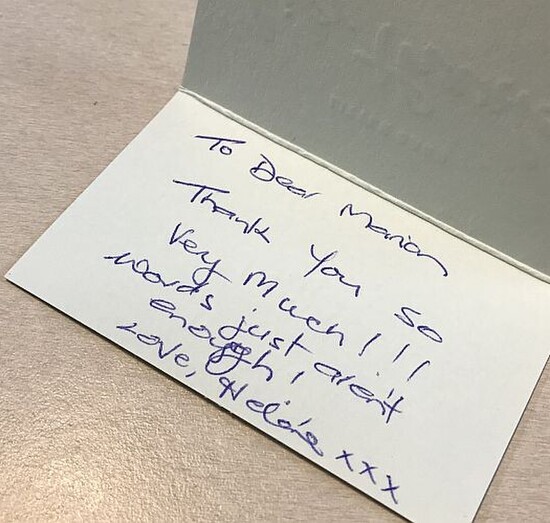 To Dear Marion
Thank You so
Very Much!!!
Words just aren't
enough,
Love, Heléna xxx